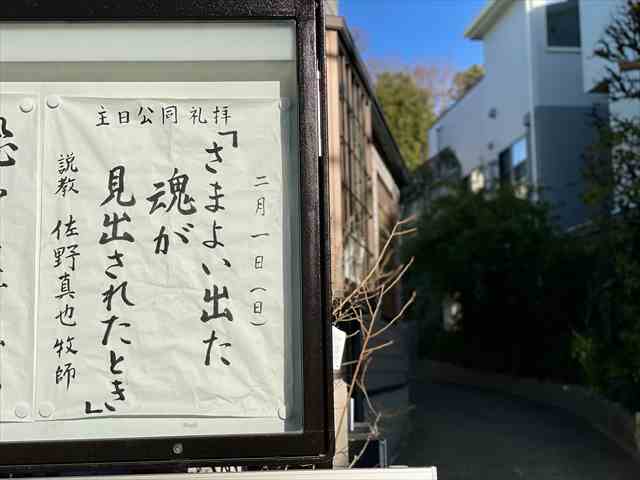 主日公同礼拝
二月一日(日)
「さまよい出た
魂が
見出されたとき」
説教 佐野真也牧師